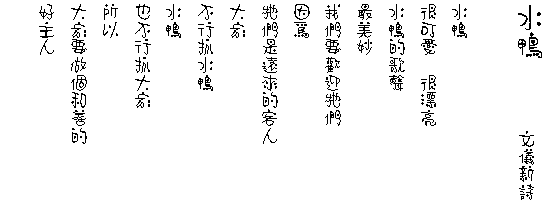 水鴨
文儀新詩
水鴨
很可愛 很漂亮
水鴨的歌聲
最美妙
我們要歡迎牠們
因為
牠們是遠來的客人
大家
不行抓水鴨
水鴨
也不行抓大家
所以
大家要做個和善的
好主人